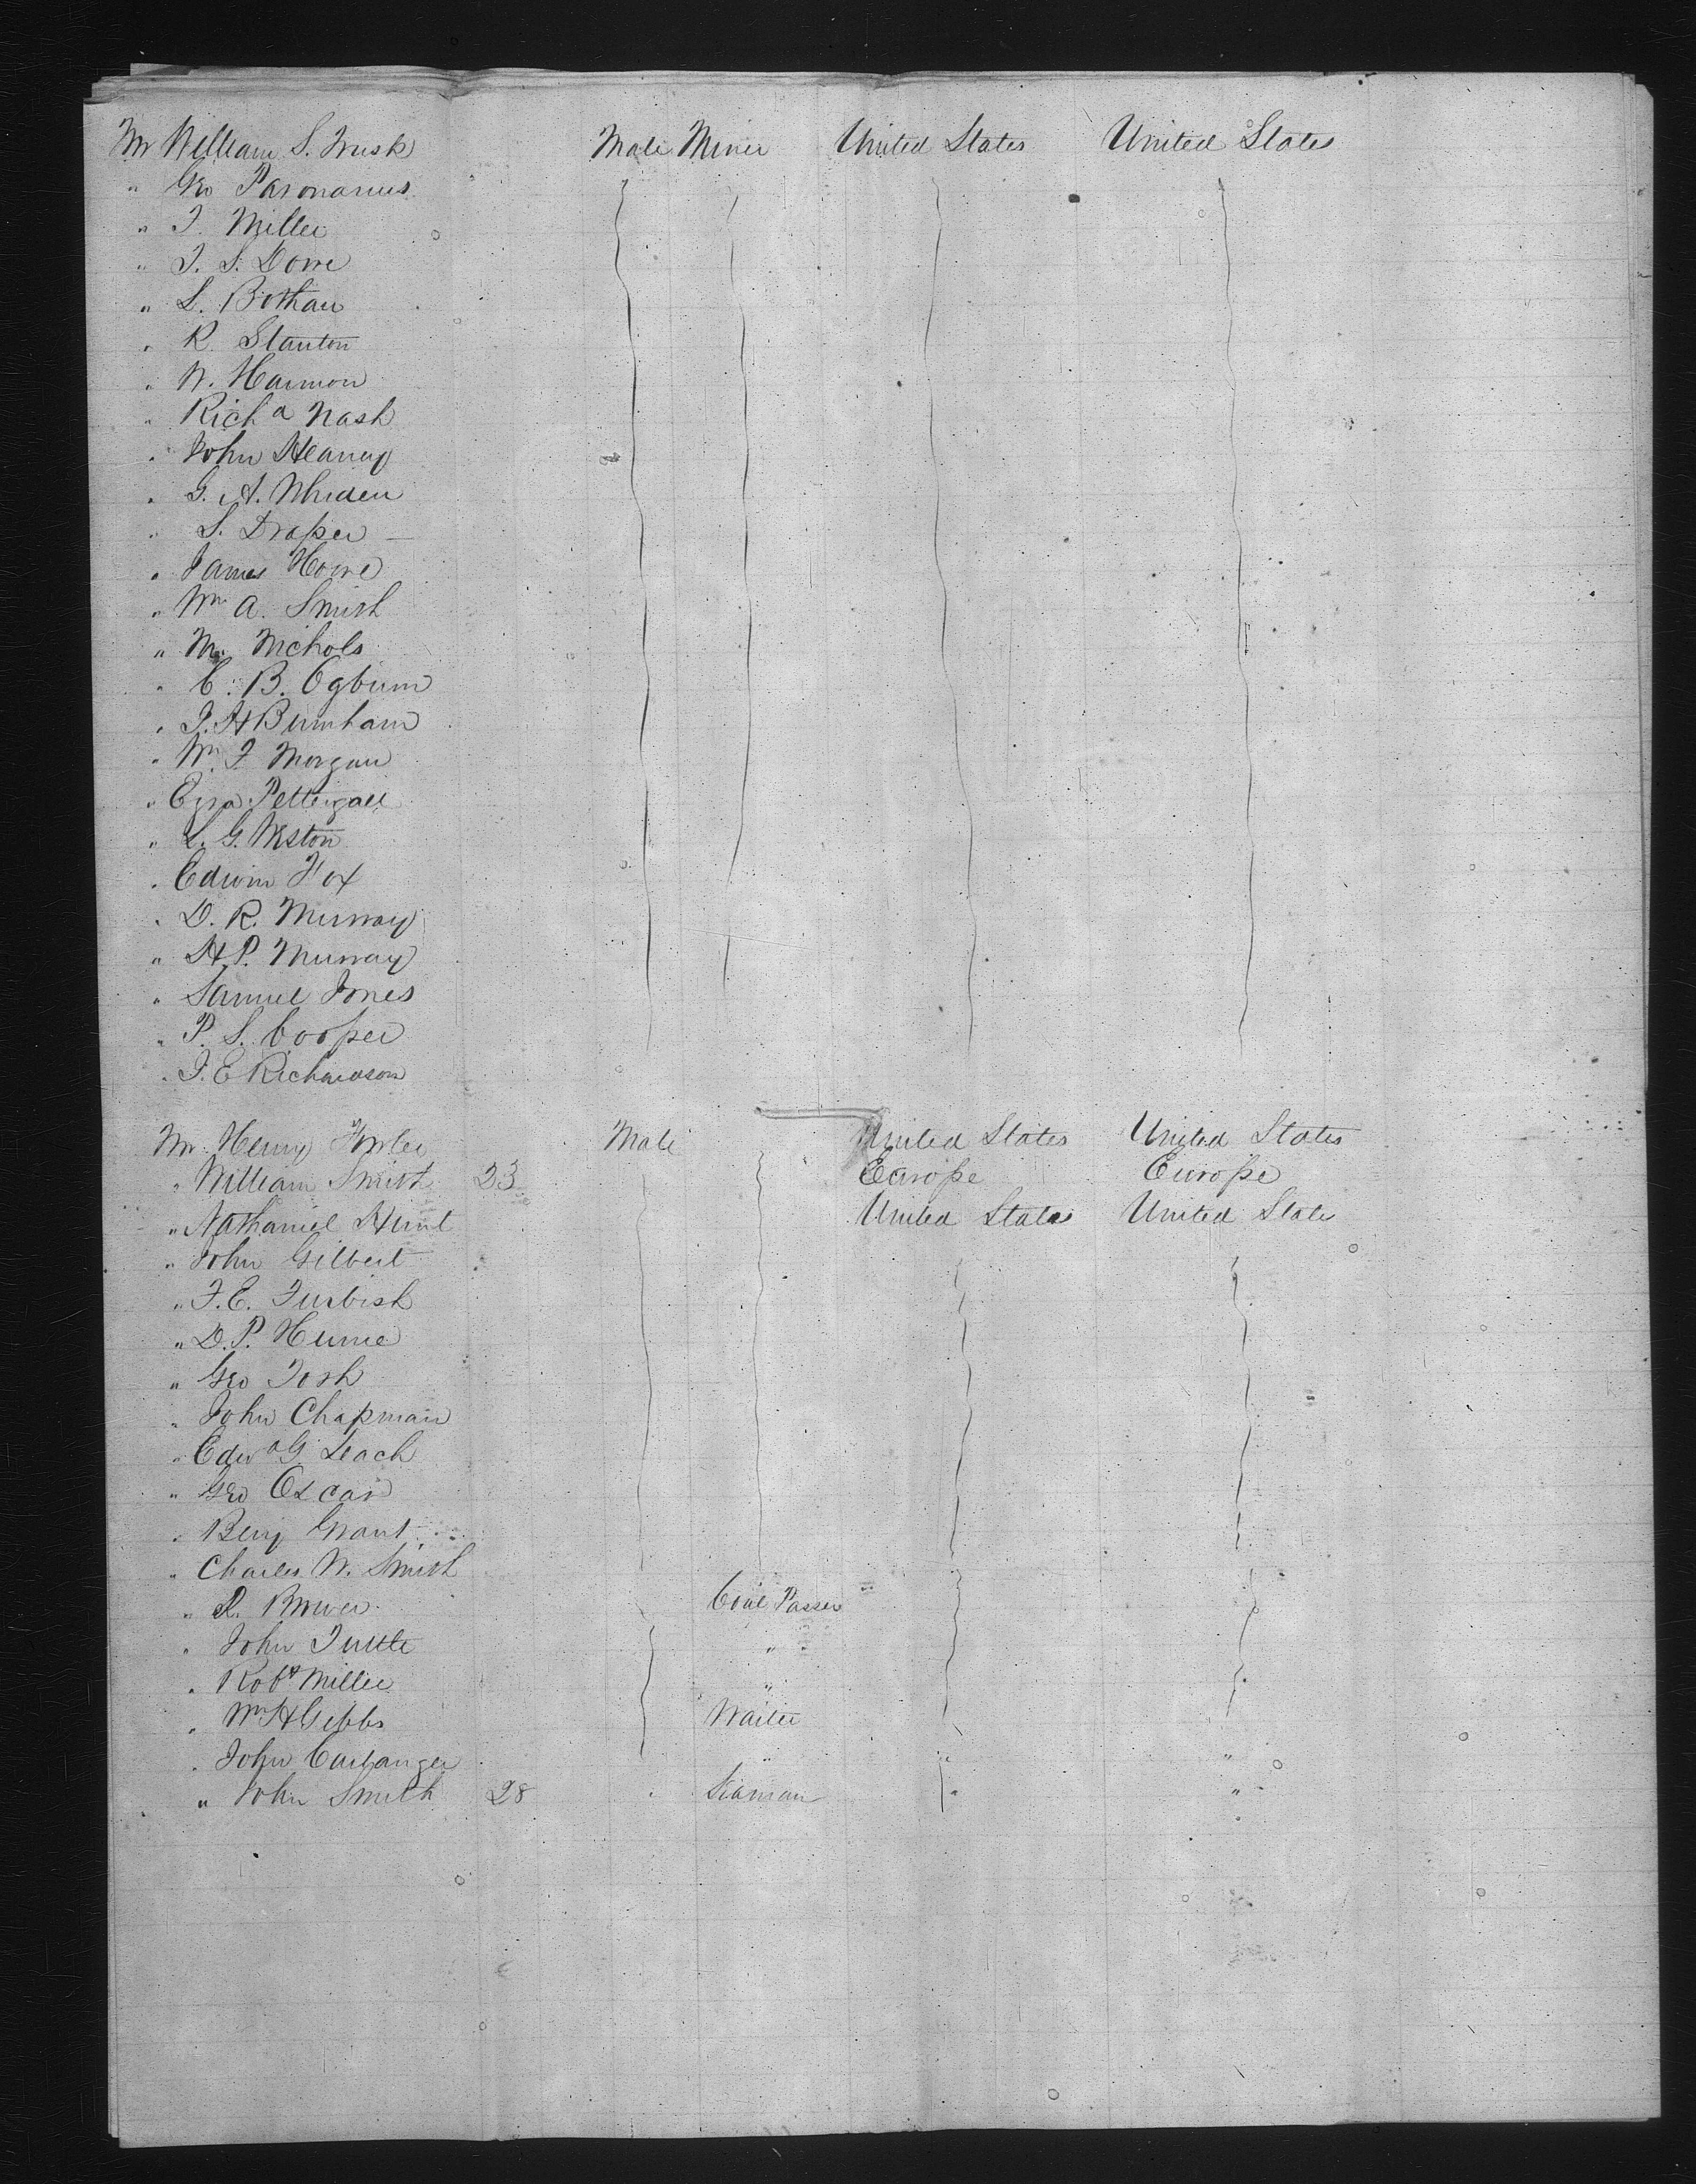 Mr William S. Trusk Male Miner United States United States
" Geo Paronarius
" J. Miller
" J. S. Dowe
" L. Bothan
" R. Stanton
" W. Harmon
" Richd Nash
" John Heaney
" G. A. Whiden
" S. Draper —
" James Howe
" Wm A. Smith
" M. Nichols
" C. B. Ogburn
" J. H Burnham
" Wm F Morgan
" Ezra Pettengall
" L. G. Weston
" Edwin Fox
" D. R. Murray
" H. P. Murray
" Samuel Jones
" P. S. Cooper
" J. E Richardson
Mr Henry Male United States United States
" William Smith 23 Europe Europe
" Nathaniel Hunt United States United State
" John Gilbert
" F. E. Furbish
" D. P. Hume
" Geo Tosh
" John Chapman
" Edwd G. Leach
" Geo Oscar
" Benj Grant
" Charles W. Smith
" R. Brower Coal Passer
" John Tuttle "
" Robt Miller "
" Wm H Gibbs Waiter
" John " " "
" John Smith 28 " Seaman " "